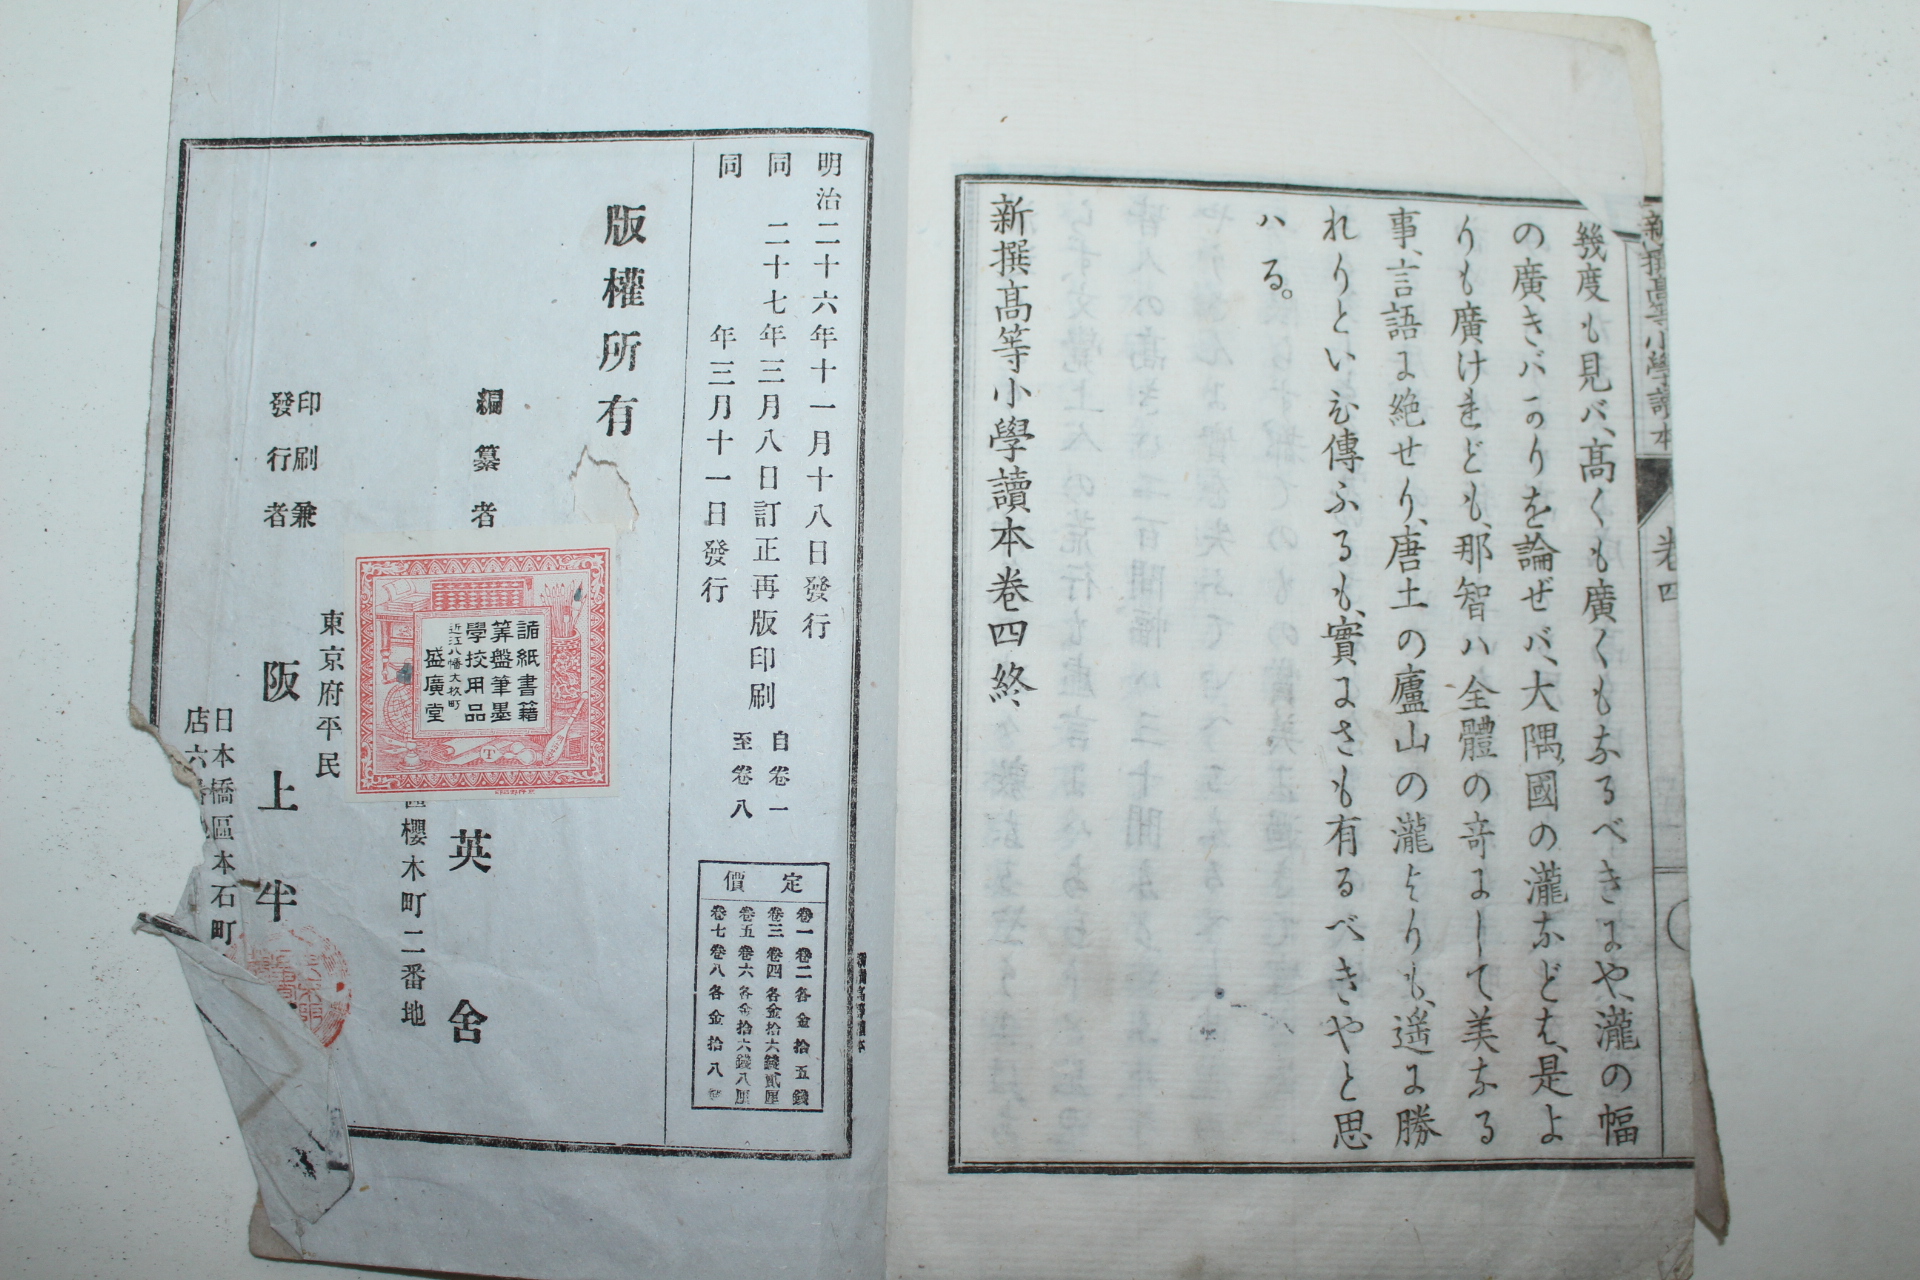 新撰高等小學讀本
卷四
幾度も見バ、高くも廣くもあるべきにや、瀧の幅
の廣きバかりを論ぜバ、大隅國の瀧などは、是よ
りも廣けれども、那智ハ全體の奇にして美なる
事、言語に絶せり、唐土の廬山の瀧よりも、遥に勝
れりといひ傳ふるも、實にさも有るべきやと思
ハる。
新撰高等小學讀本卷四終
明治二十六年十一月十八日發行
同 二十七年三月八日訂正再版印刷
同 年三月十一日發行
自卷一
至卷八
定價
卷一卷二各金拾五錢
卷三卷四各金拾六錢貳厘
卷五卷六各金拾六錢八厘
卷七卷八各金拾八
版權所有
編纂者
英
舍
櫻木町二番地
諸紙書籍
筭盤筆墨
學校用品
近江八幡大杉町
盛廣堂
印刷兼
發行者
東京府平民
阪上半
日本橋區本石町
店六